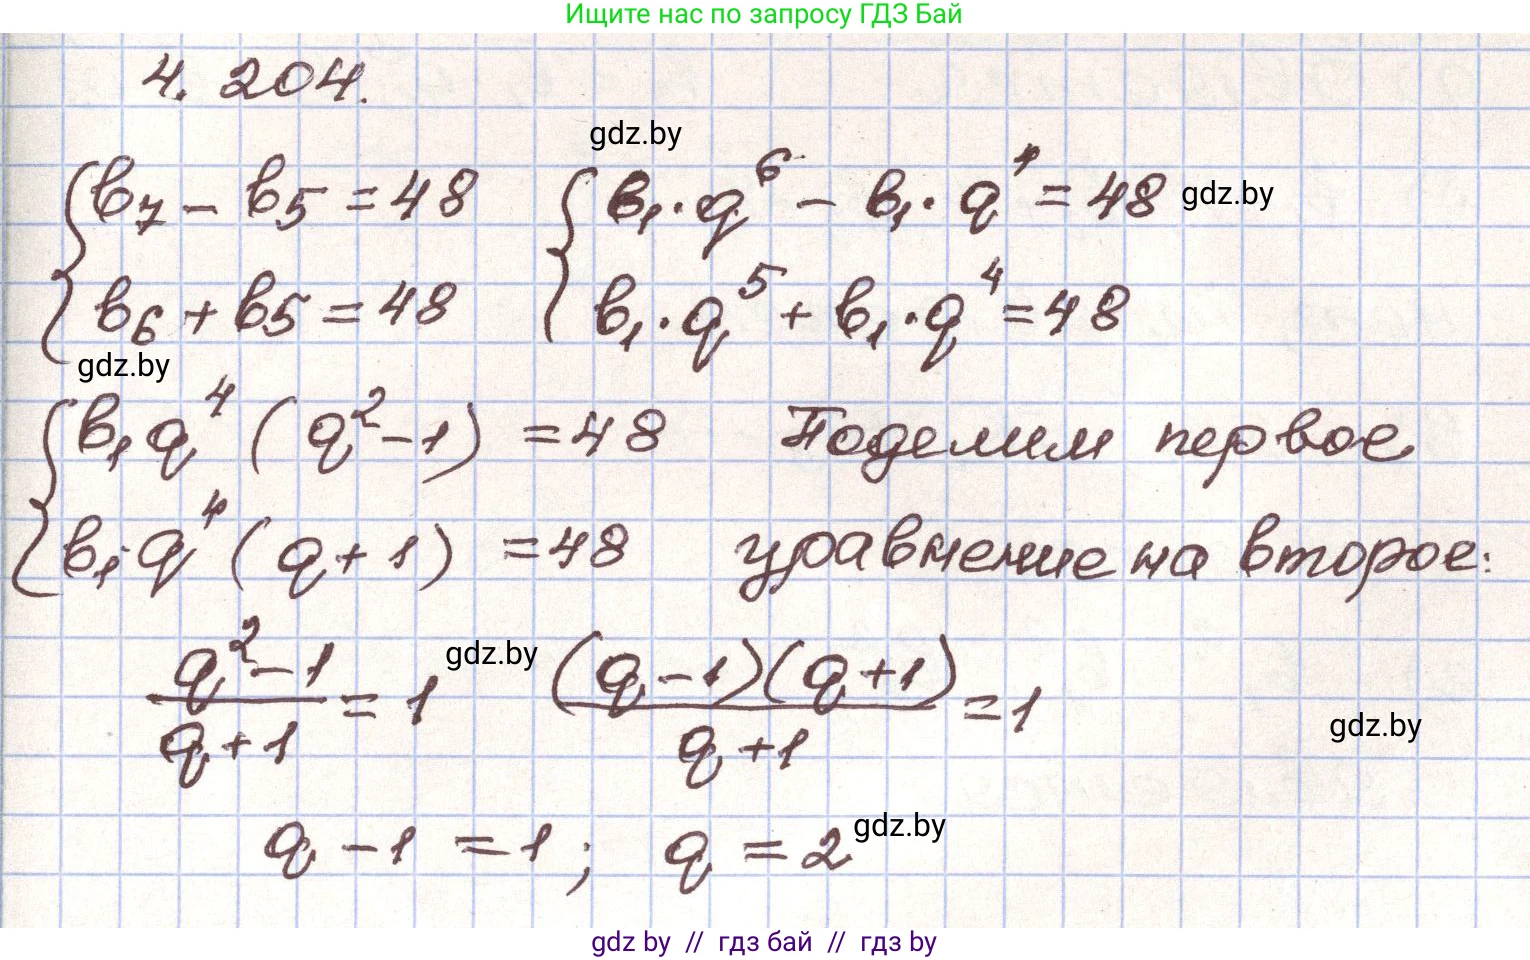 Ищите нас по запросу ГДЗ Бай
4. 204.
gdz.by
{ b₇ - b₅ = 48 { b₁ · q⁶ - b₁ · q⁴ = 48 gdz.by
b₆ + b₅ = 48 b₁ · q⁵ + b₁ · q⁴ = 48
gdz.by
{ b₁ q⁴ (q² - 1) = 48 Поделим первое
b₁ · q⁴ (q + 1) = 48 уравнение на второе:
(q² - 1)/(q + 1) = 1 gdz.by ((q - 1)(q + 1))/(q + 1) = 1
gdz.by
q - 1 = 1 ; q = 2 gdz.by
gdz by // гдз бай // гдз by